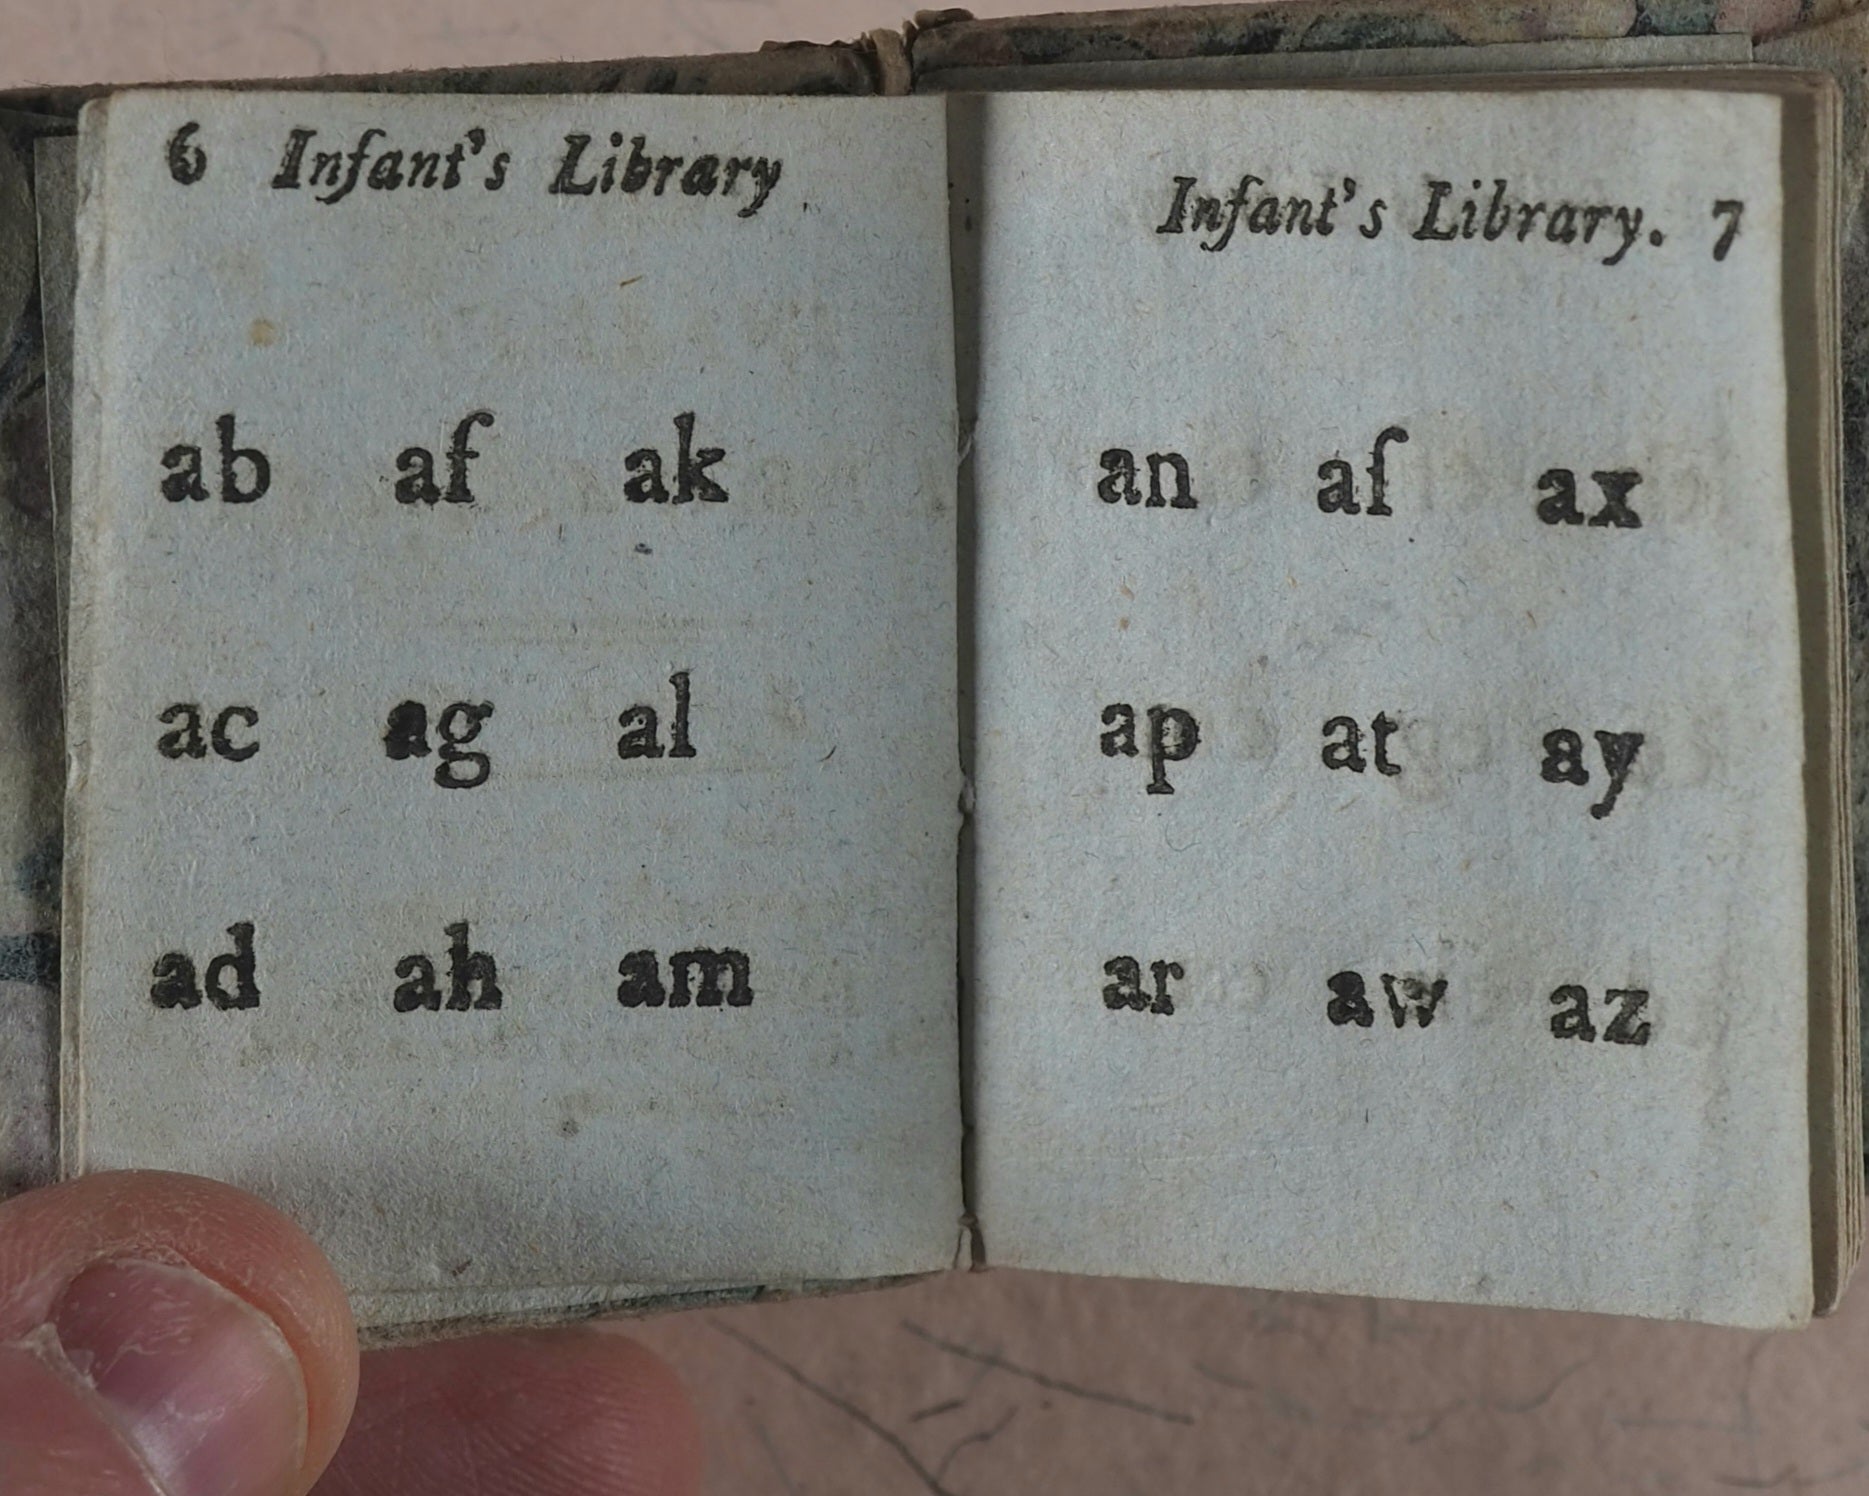 6 Infant's Library
ab af ak
ac ag al
ad ah am
Infant's Library. 7
an aſ ax
ap at ay
ar aw az